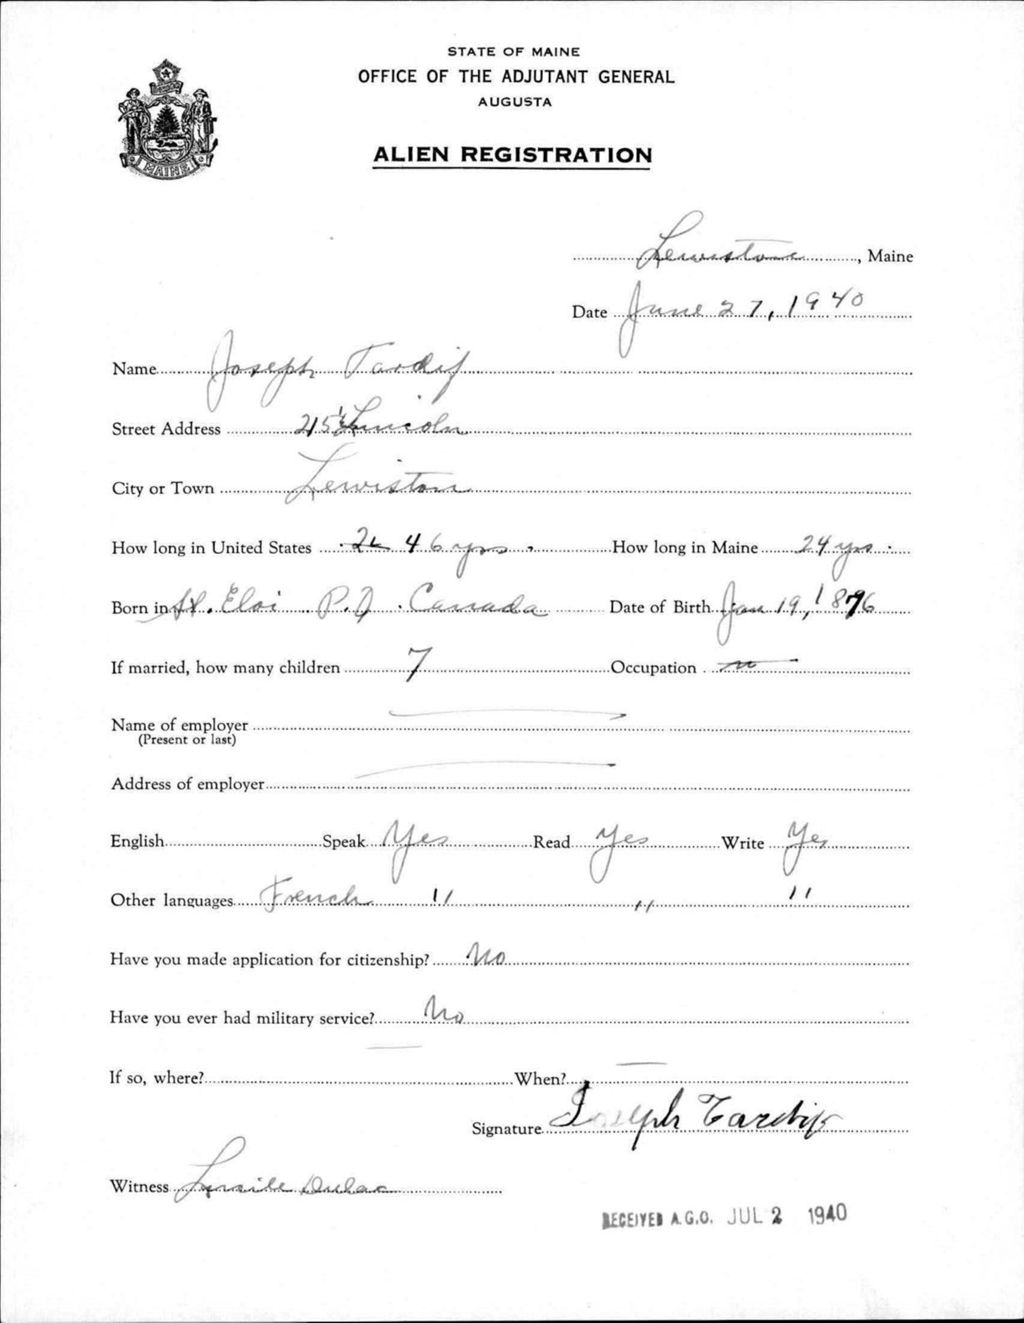 STATE OF MAINE
OFFICE OF THE ADJUTANT GENERAL
AUGUSTA
ALIEN REGISTRATION
MAINE
Lewiston, Maine
Date June 27, 1940
Name Joseph Tardif
Street Address 215 Lincoln
City or Town Lewiston
How long in United States 46 yrs. How long in Maine 24 yrs.
Born in St. Eloi P.Q. Canada Date of Birth Jan 19, 1876
If married, how many children 7 Occupation
Name of employer
(Present or last)
Address of employer
English Speak Yes Read Yes Write Yes
Other languages French " " "
Have you made application for citizenship? No
Have you ever had military service? No
If so, where? When?
Signature Joseph Tardif
Witness Lucille Dulac
RECEIVED A.G.O. JUL 2 1940